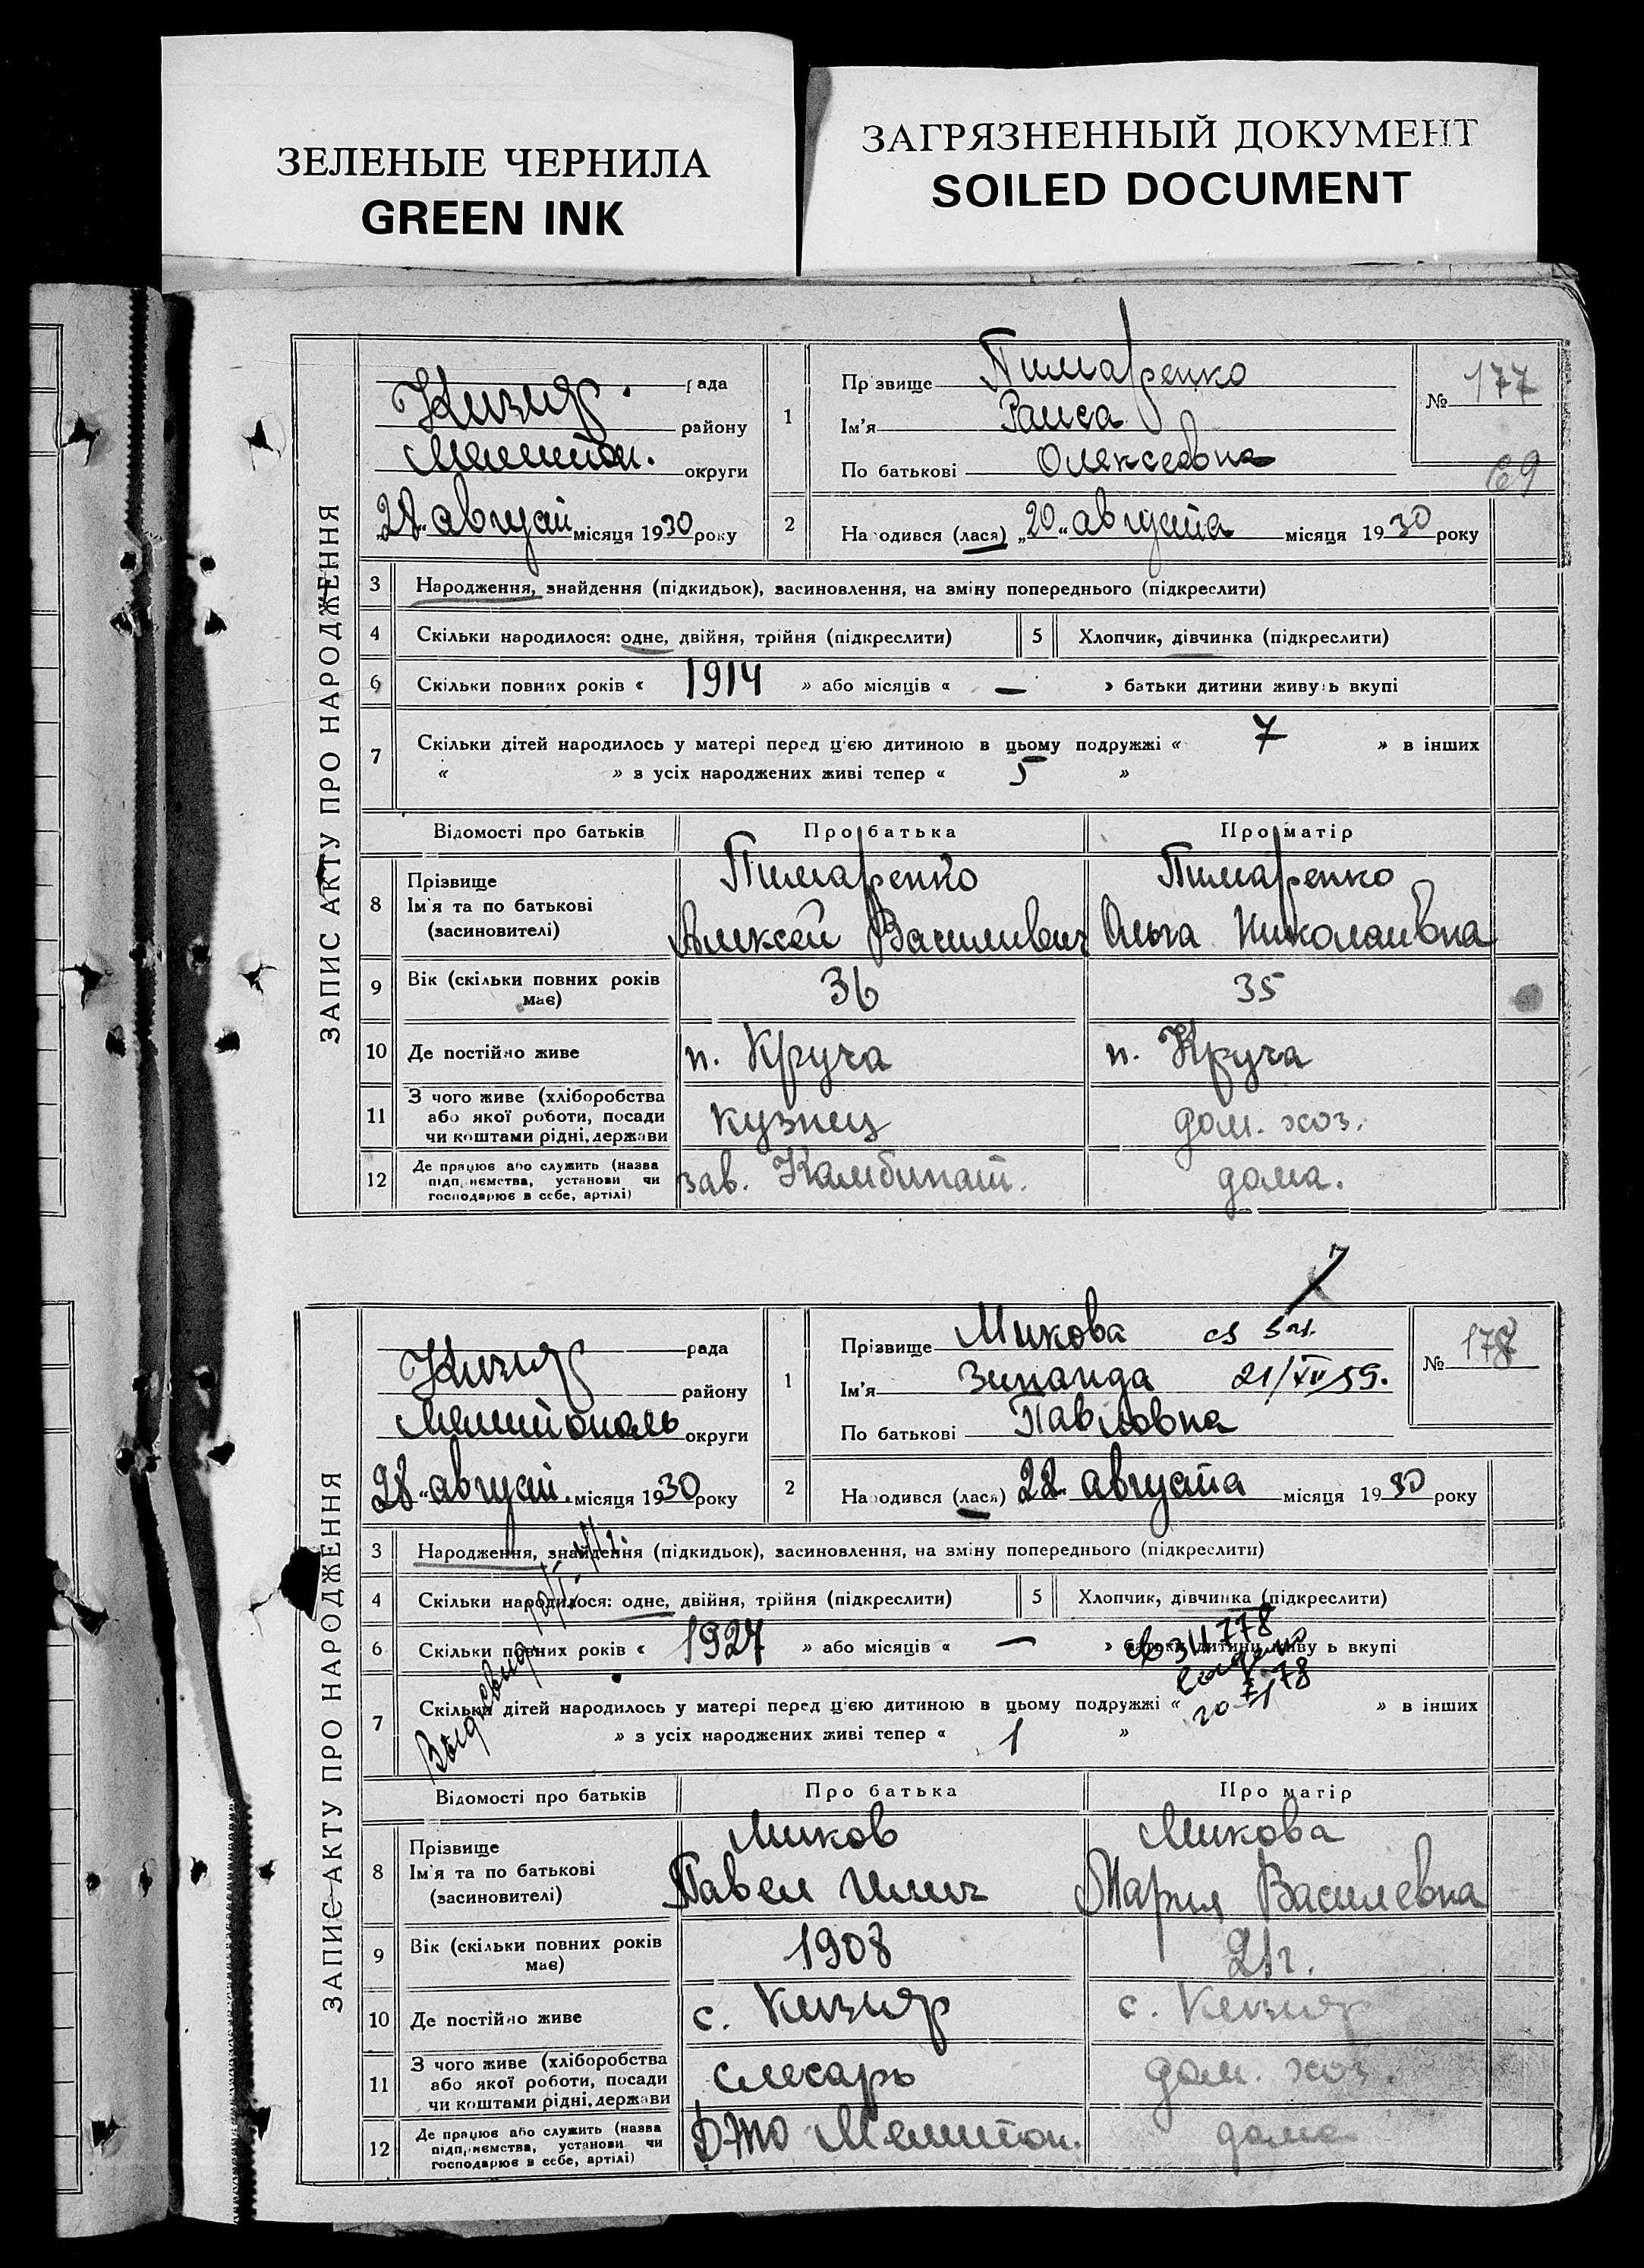 ЗЕЛЕНЫЕ ЧЕРНИЛА
GREEN INK
ЗАГРЯЗНЕННЫЙ ДОКУМЕНТ
SOILED DOCUMENT
ЗАПИС АКТУ ПРО НАРОДЖЕННЯ
Кизияр. рада
району
Мелитоп. округи
„28“ август місяця 1930 року
1
Прізвище Пимаренко
Ім'я Раиса
По батькові Олексеевна
№ 177
69
2 Народився (лася) „20“ августа місяця 1930 року
3 Народження, знайдення (підкидьок), засиновлення, на зміну попереднього (підкреслити)
4 Скільки народилося: одне, двійня, трійня (підкреслити) 5 Хлопчик, дівчинка (підкреслити)
6 Скільки повних років « 1914 » або місяців « — » батьки дитини живуть вкупі
7 Скільки дітей народилось у матері перед цією дитиною в цьому подружжі « 7 » в інших
« » з усіх народжених живі тепер « 5 »
Відомості про батьків Про батька Про матір
8 Прізвище Пимаренко Пимаренко
Ім'я та по батькові Алексей Василивич Ольга Николаивна
(засиновителі)
9 Вік (скільки повних років 36 35
має)
10 Де постійно живе п. Круча п. Круча
11 З чого живе (хліборобства
або якої роботи, посади кузнец дом. хоз.
чи коштами рідні, держави
12 Де працює або служить (назва зав. Камбинат. дома.
підприємства, установи чи
господарює в себе, артілі)
ЗАПИС АКТУ ПРО НАРОДЖЕННЯ
Кизияр рада
району
Мелитополь округи
„28“ август. місяця 1930 року
1
Прізвище Микова
Ім'я Зинаида 21/XII 59.
По батькові Павловна
№ 178
2 Народився (лася) 22 августа місяця 1930 року
3 Народження, знайдення (підкидьок), засиновлення, на зміну попереднього (підкреслити)
4 Скільки народилося: одне, двійня, трійня (підкреслити) 5 Хлопчик, дівчинка (підкреслити)
6 Скільки повних років « 1927 » або місяців « — » батьки дитини живуть вкупі
7 Скільки дітей народилось у матері перед цією дитиною в цьому подружжі « » в інших
» з усіх народжених живі тепер « 1 »
Відомості про батьків Про батька Про матір
8 Прізвище Миков Микова
Ім'я та по батькові Павел Илич Мария Василевна
(засиновителі)
9 Вік (скільки повних років 1908 21 г.
має)
10 Де постійно живе с. Кизияр с. Кизияр
11 З чого живе (хліборобства
або якої роботи, посади слесарь дом. хоз.
чи коштами рідні, держави
12 Де працює або служить (назва Мелитоп. дома
підприємства, установи чи
господарює в себе, артілі)